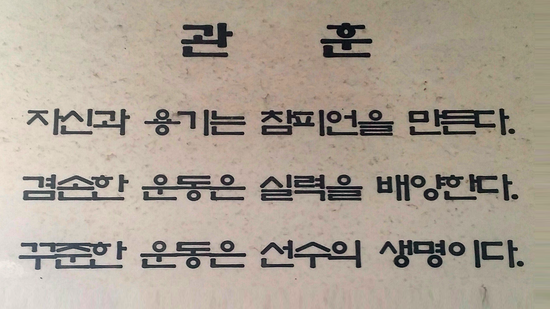 관 훈
자신과 용기는 참피언을 만든다.
겸손한 운동은 실력을 배양한다.
꾸준한 운동은 선수의 생명이다.